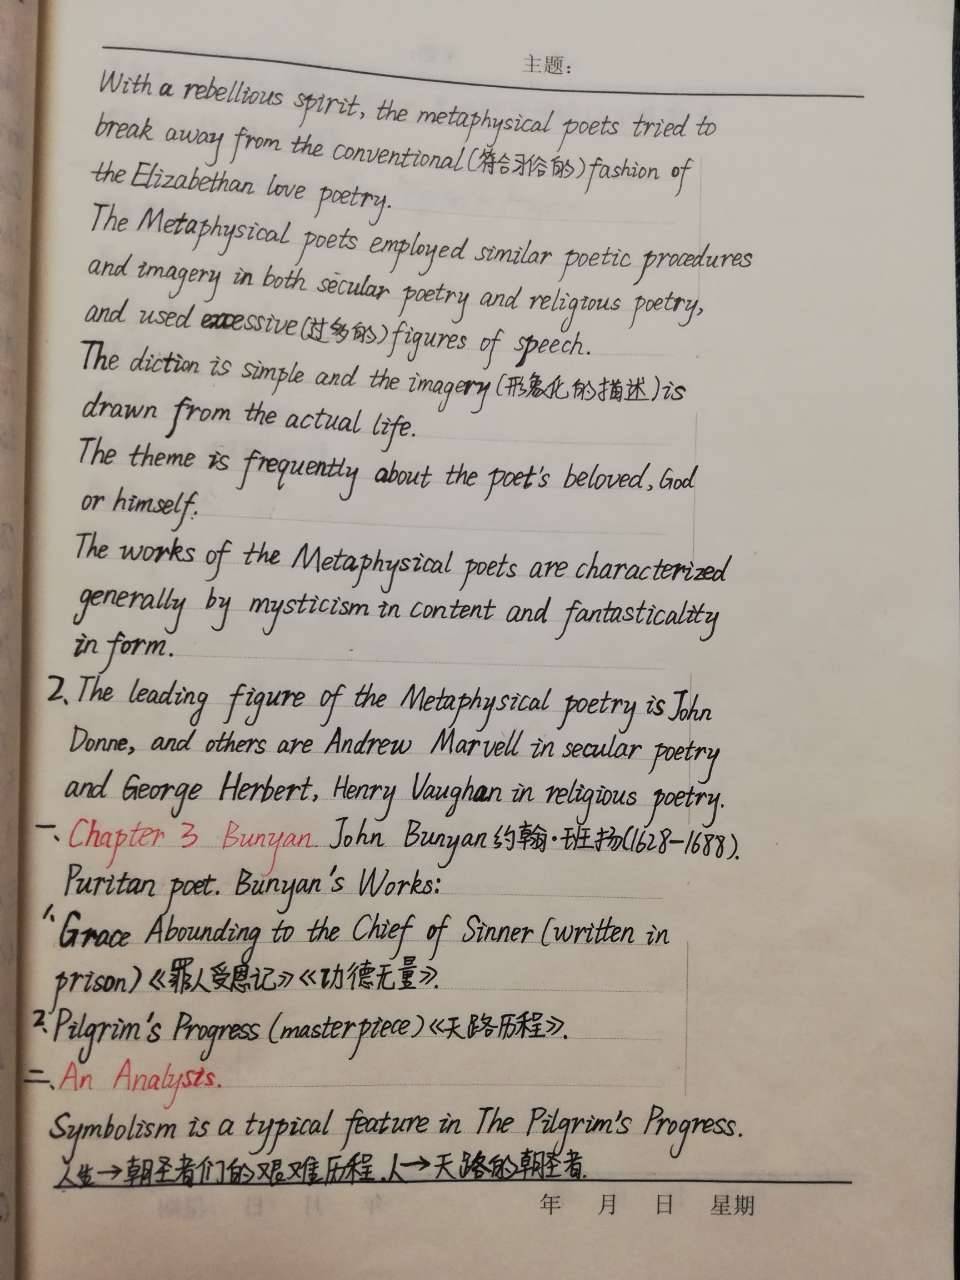 主题:
With a rebellious spirit, the metaphysical poets tried to
break away from the conventional(符合习俗的)fashion of
the Elizabethan love poetry.
The Metaphysical poets employed similar poetic procedures
and imagery in both secular poetry and religious poetry,
and used excessive(过多的)figures of speech.
The diction is simple and the imagery(形象化的描述)is
drawn from the actual life.
The theme is frequently about the poet's beloved, God
or himself.
The works of the Metaphysical poets are characterized
generally by mysticism in content and fantasticality
in form.
2、The leading figure of the Metaphysical poetry is John
Donne, and others are Andrew Marvell in secular poetry
and George Herbert, Henry Vaughan in religious poetry.
一、Chapter 3 Bunyan John Bunyan 约翰·班扬(1628-1688).
Puritan poet. Bunyan's Works:
1、Grace Abounding to the Chief of Sinner (written in
prison)《罪人受恩记》《功德无量》.
2、Pilgrim's Progress (masterpiece)《天路历程》.
二、An Analysis.
Symbolism is a typical feature in The Pilgrim's Progress.
人生→朝圣者们的艰难历程.人→天路的朝圣者.
年 月 日 星期